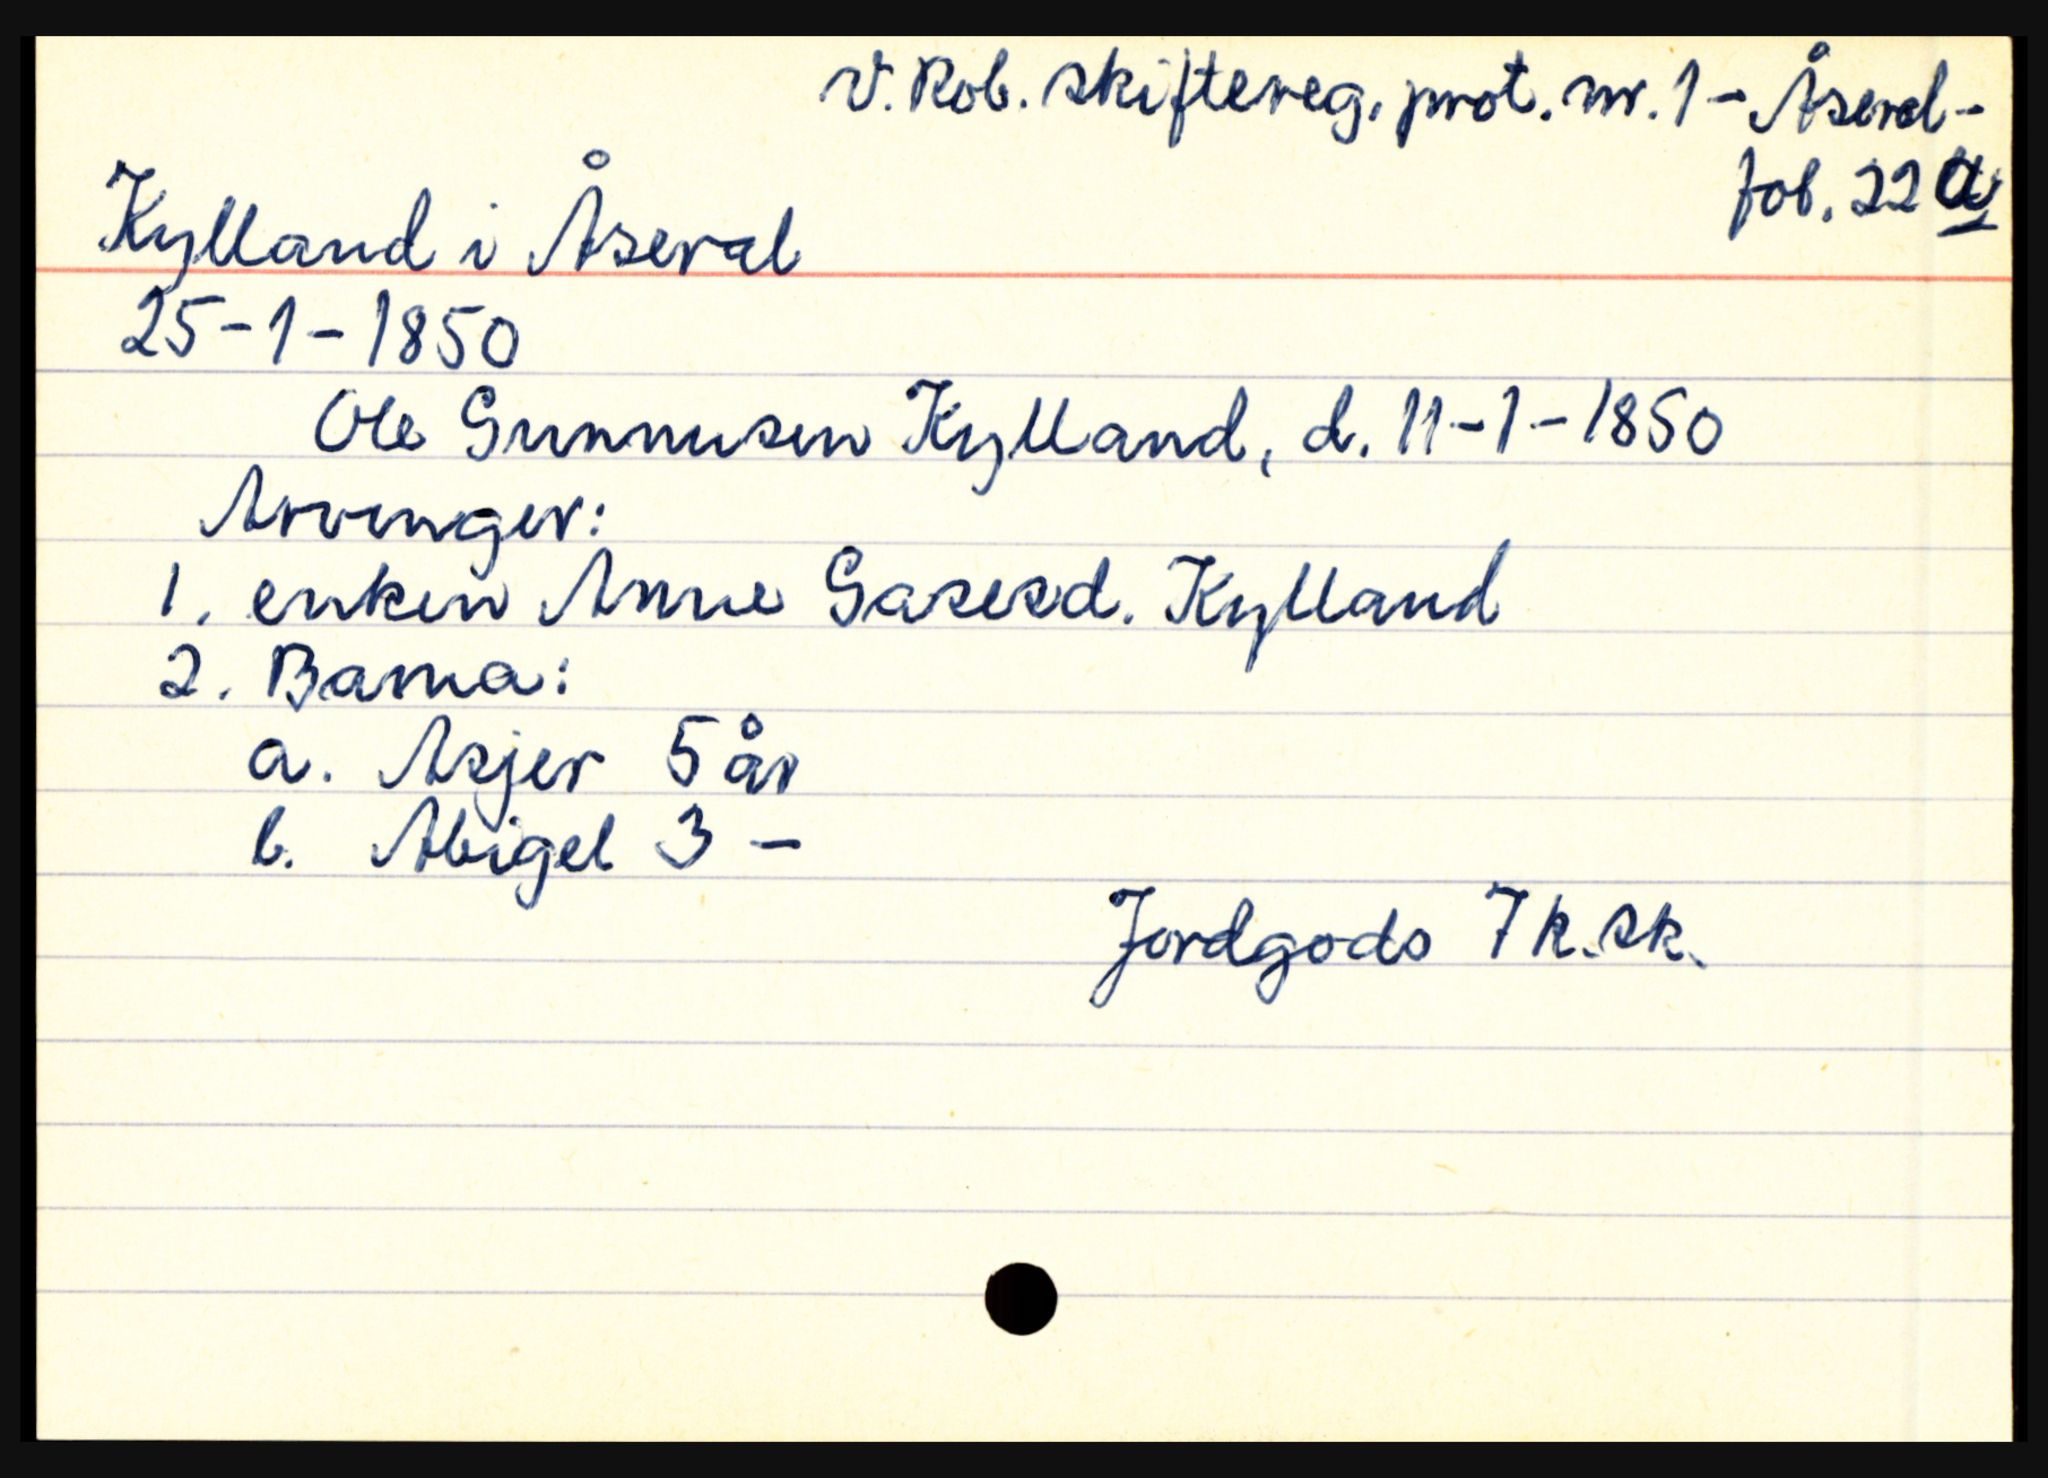 V. Rob. skiftereg. prot. nr. 1 - Åseral -
fol. 22 a
Kylland i Åseral
25-1-1850
Ole Gunnusen Kylland, d. 11-1-1850
Arvinger:
1. enken Anne Gasesd. Kylland
2. Barna:
a. Asjer 5 år
b. Abigel 3 -
Jordgods 7 k. sk.